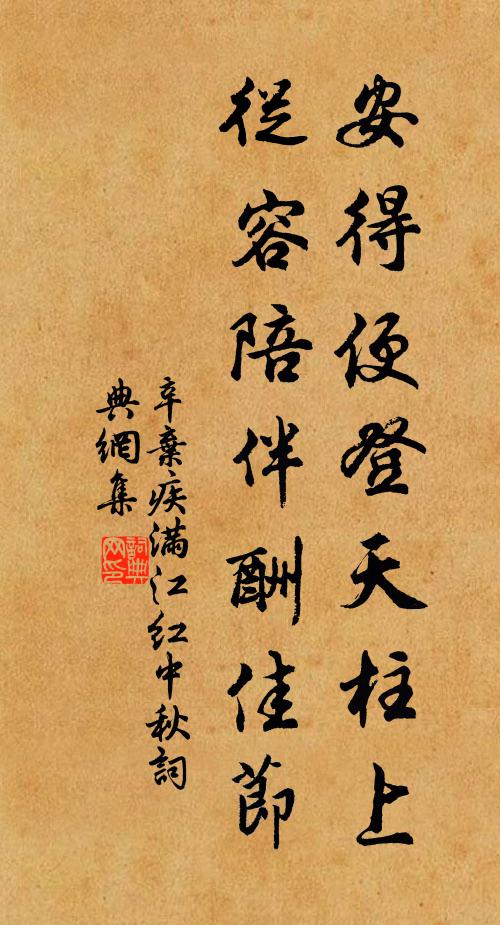 安得便登天柱上
從容陪伴酬佳節
辛棄疾滿江紅中秋詞
典網集
詞典網印